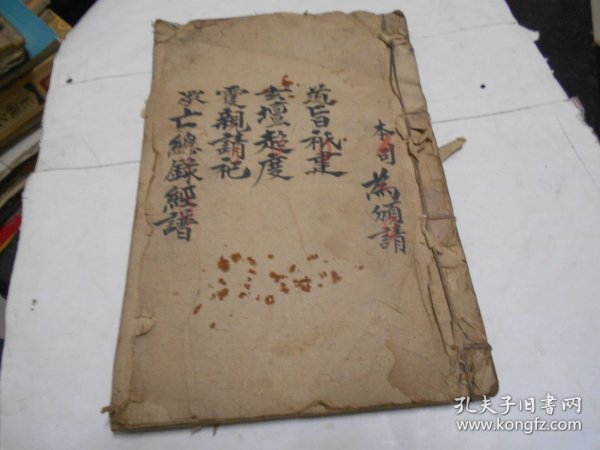 本司為頒請
道旨祇建
玄壇超度
靈親請祀
眾亡總錄經譜
孔夫子旧书网
www.kongfz.com